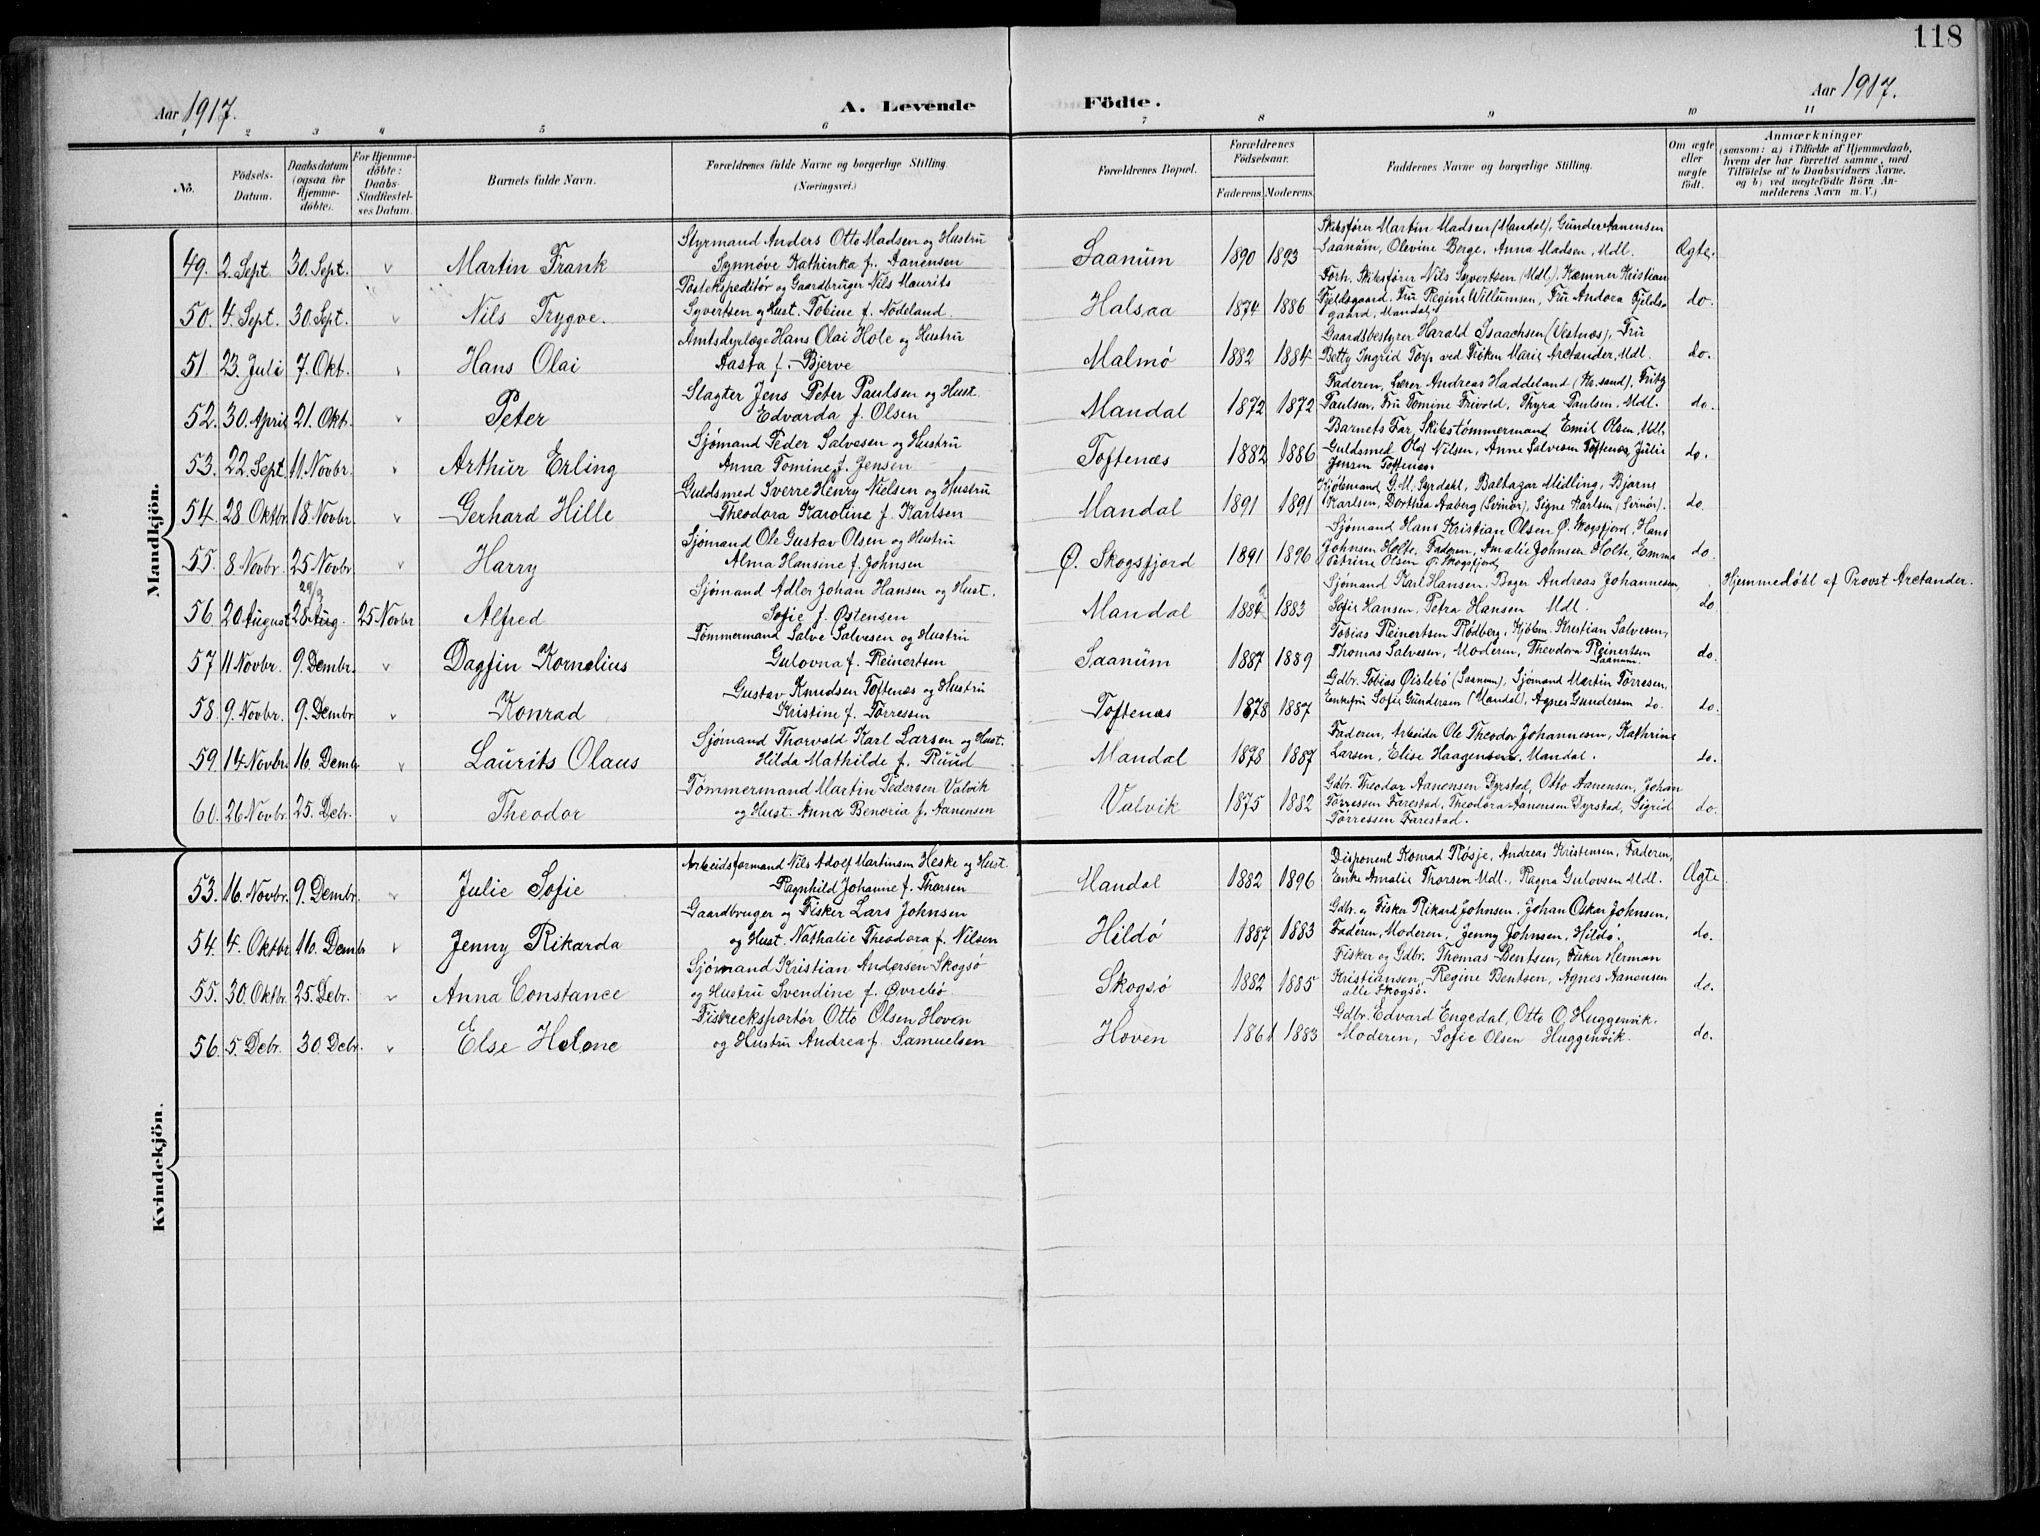 118
Aar 1917.
A. Levende Födte.
Aar 1917.
1 2 3 4 5 6 7 8 9 10 11
No.
Födsels-Datum.
Daabsdatum (ogsaa for Hjemme-döbte).
For Hjemme-döbte: Daabs-Stadfæstel-ses Datum.
Barnets fulde Navn.
Forældrenes fulde Navne og borgerlige Stilling. (Næringsvei.)
Forældrenes Bopæl.
Forældrenes Födselsaar.
Faderens. Moderens.
Faddernes Navne og borgerlige Stilling.
Om ægte eller uægte födt.
Anmærkninger (saasom: a.) i Tilfælde af Hjemmedaab, hvem der har forrettet samme, med Tilföielse af to Daabsvidners Navne, og b) ved uægtefödte Börn An-melderens Navn m. V.)
Mandkjön.
49. 2. Sept 30. Sept. v Martin Frank Styrmand Anders Otto Madsen og Hustru Synnöve Kathinka f. Aanensen Saanum 1890 1893 Skibsfører Martin Madsen (Mandal), Gunder Aanensen Saanum, Olevine Berge, Anna Madsen, Mdl. Ægte.
50. 4. Sept. 30. Sept. v Nils Trygve. Postekspeditör og Gaardbruger Nils Maurits Syvertsen og Hust. Tobine f. Nödeland. Halsaa 1874 1886 Forh. Skibsfører Nils Syvertsen (Mdl), Kæmner Kristian Fjeldsgaard, Fru Regine Willumsen, Fru Andrea Fjelds-gaard, Mandal. do.
51 23. Juli 7. Okt. v Hans Olai Amtsdyrlæge Hans Olai Hole og Hustru Aasta f. Bjerve Malmø 1882 1884 Gaardsbestyrer Harald Isaachsen (Vestnæs), Fru Betty Ingrid Torp ved Frøken Marie Arctander, Mdl. do.
52. 30. April 21. Okt. v Peter Slagter Jens Peter Paulsen og Hust. Edvarda f. Olsen Mandal 1872 1872 Faderen, Lærer Andreas Haddeland (Kr.sand), Fritz Paulsen, Fru Tomine Frivold, Thyra Paulsen, Mdl. do.
53. 22. Sept. 11. Novbr. v Arthur Erling Sjömand Peder Salvesen og Hustru Anna Tomine f. Jensen Toftenæs 1882 1886 Barnets Far Skibstømmermand Emil Olsen, Mdl. Guldsmed Olaf Nilsen, Anne Salvesen Toftenæs, Julie Jensen Toftenæs. do.
54. 28 Oktbr. 18. Novbr. v Gerhard Hille Guldsmed Sverre Henry Nielsen og Hustru Theodora Karoline f. Karlsen Mandal 1891 1891 Kjøbmand G. M. Syrdahl, Baltazar Midling, Bjarne Karlsen, Dorthea Aaberg (Svinør), Signe Karlsen (Svinør). do
55. 8 Novbr. 25 Novbr. v Harry Sjömand Ole Gustav Olsen og Hustru Alma Hansine f. Johnsen Ø. Skogsfjord 1891 1896 Sjømand Hans Kristian Olsen, Ø. Skogsfjord, Hans Johnsen Holte, Faderen, Amalie Johnsen Holte, Emma Petrine Olsen Ø. Skogsfjord. do
56. 20 August 28 Aug. 29/9 25 Novbr Alfred Sjömand Adler Johan Hansen og Hust. Sofie f. Östensen Mandal 1884 1883 Sjømand Karl Hansen, Bager Andreas Johannesen, Sofie Hansen, Petra Hansen Mdl. do Hjemmedøbt af Provst Arctander.
57. 11 Novbr. 9. Dembr. v Dagfin Kornelius Tømmermand Salve Salvesen og Hustru Gulovna f. Reinertsen Saanum 1887 1889 Tobias Reinertsen Rødberg, Kjöbm. Kristian Salvesen, Thomas Salvesen, Moderen, Theodora Reinertsen Saanum. do.
58. 9. Novbr. 9. Dembr v Konrad Gustav Knudsen Toftenæs og Hustru Kristine f. Tørressen Toftenæs 1878 1887 Gdbr. Tobias Øislebö (Saanum), Sjømand Martin Tørresen, Enkefru Sofie Gundersen (Mandal), Agnes Gundersen do. do.
59. 14 Novbr. 16. Dembr v Laurits Olaus Sjömand Thorvald Karl Larsen og Hust. Hilda Mathilde f. Ruud Mandal 1878 1887 Faderen, Arbeider Ole Theodor Johannesen, Kathrine Larsen, Elise Haagensen, Mandal. do.
60. 26 Novbr. 25. Debr. v Theodor Tømmermand Martin Pedersen Valvik og Hust. Anna Benoria f. Aanensen Valvik 1875 1882 Gdbr. Theodor Aanensen Dyrstad, Otto Aanensen, Johan Tørressen Farestad, Theodora Aanensen Dyrstad, Sigrid Tørressen Farestad. do.
Kvindekjön.
53. 16. Novbr. 9. Dembr. v Julie Sofie Arbeidsformand Nils Adolf Martinsen Heske og Hust. Ragnhild Johanne f. Thorsen Mandal 1882 1896 Disponent Konrad Røsje, Andreas Kristensen, Faderen, Enke Amalie Thorsen Mdl., Ragna Gulovsen Mdl. Ægte
54. 4. Oktbr. 16. Dembr v Jenny Rikarda Gaardbruger og Fisker Lars Johnsen og Hust. Nathalie Theodora f. Nilsen Hildö 1887 1883 Gdbr. og Fisker Rikard Johnsen, Johan Oskar Johnsen, Faderen, Moderen, Jenny Johnsen, Hildö. do.
55. 30. Oktbr. 25. Debr. v Anna Constance Sjömand Kristian Andersen Skogsö og Hustru Svendine f. Øvrebö Skogsö 1882 1885 Fisker og Gdbr. Thomas Bentsen, Fisker Herman Kristiansen, Regine Bentsen, Agnes Aanensen alle Skogsø. do.
56. 5. Debr. 30. Debr. v Else Helene Fiskeeksportör Otto Olsen Hoven og Hustru Andrea f. Samuelsen Hoven 1861 1883 Gdbr. Edvard Engedal, Otto O. Huggenvik. Moderen, Sofie Olsen Huggenvik. do.